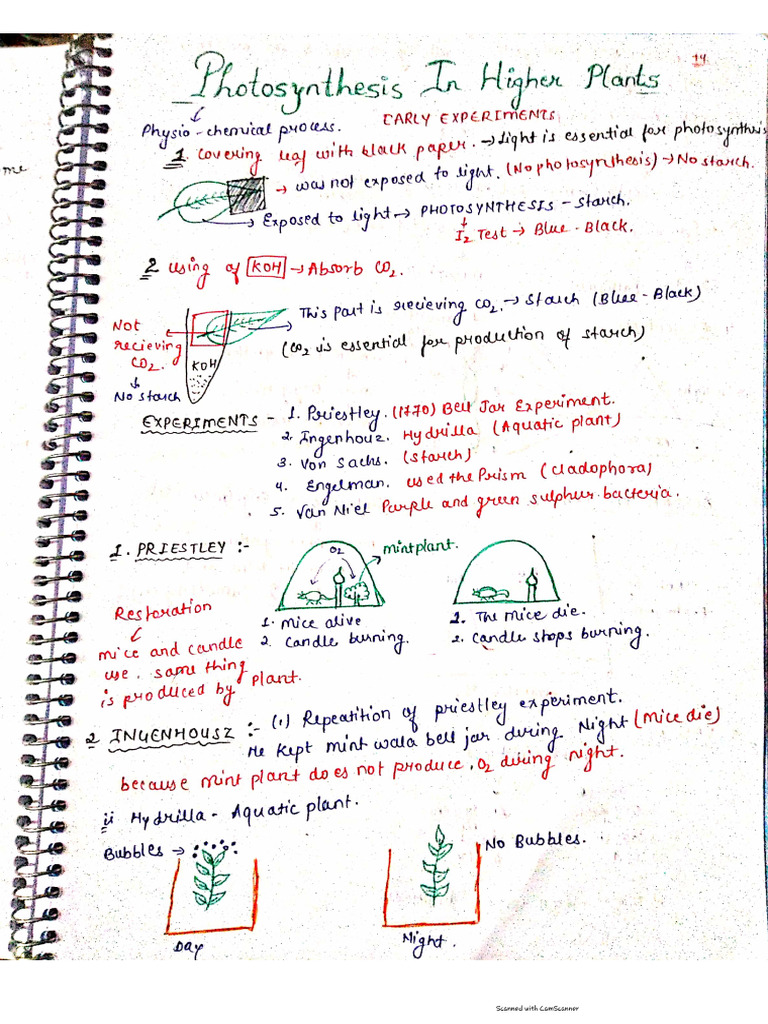 14
Photosynthesis In Higher Plants
Physio-chemical process.
EARLY EXPERIMENTS
1. Covering leaf with black paper. → light is essential for photosynthesis
→ was not exposed to light. (No photosynthesis) → No starch.
→ Exposed to light → PHOTOSYNTHESIS - Starch.
I2 Test → Blue-Black.
2 using of KOH → Absorb CO2.
→ This part is recieving CO2. → Starch (Blue-Black)
Not recieving CO2.
(CO2 is essential for production of starch)
KOH
No starch
EXPERIMENTS - 1. Priestley. (1770) Bell Jar Experiment.
2. Ingenhouz. Hydrilla (Aquatic plant)
3. Von Sachs. (Starch)
4. Engelman. used the Prism (Cladophora)
5. Van Niel Purple and green sulphur bacteria.
1. PRIESTLEY :-
O2
mint plant.
1. Mice alive
2. Candle burning.
1. The mice die.
2. Candle stops burning.
Restoration
mice and candle
use. same thing
is produced by plant.
2 INGENHOUSZ :- (i) Repeatition of priestley experiment.
He kept mint wala bell jar during Night (Mice die)
because mint plant does not produce O2 during night.
ii Hydrilla - Aquatic plant.
Bubbles →
No Bubbles.
Day
Night.
me
Scanned with CamScanner